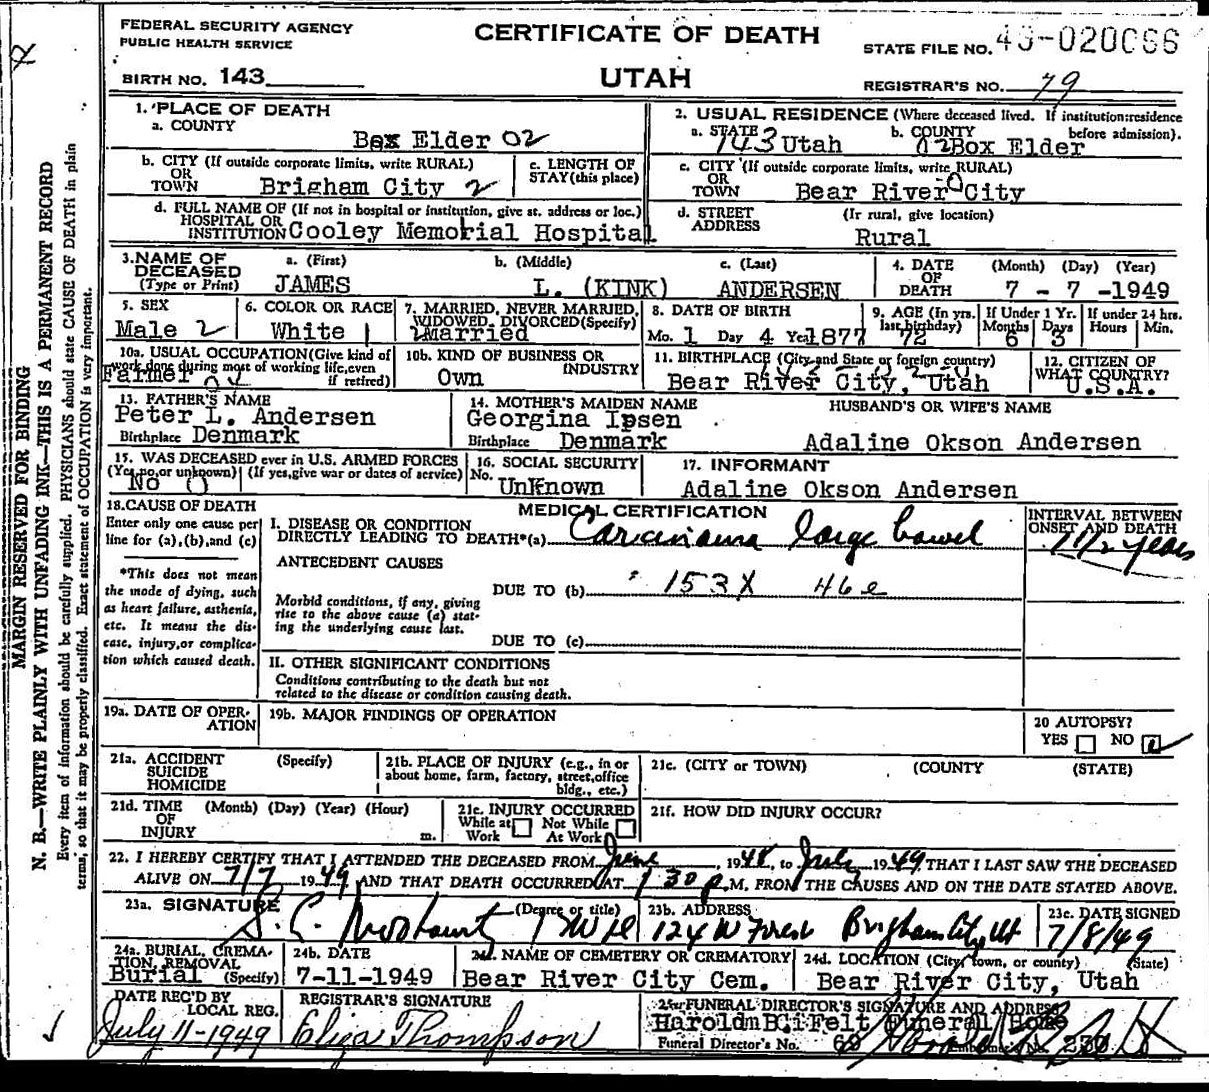 FEDERAL SECURITY AGENCY
PUBLIC HEALTH SERVICE
CERTIFICATE OF DEATH
STATE FILE NO.
BIRTH NO. 143
UTAH
REGISTRAR'S NO. 79
1. PLACE OF DEATH
a. COUNTY
Box Elder 02
2. USUAL RESIDENCE (Where deceased lived. If institution:residence before admission).
a. STATE 143 Utah
b. COUNTY 02 Box Elder
b. CITY (If outside corporate limits, write RURAL)
OR
TOWN Brigham City 2
c. LENGTH OF
STAY (this place)
c. CITY (If outside corporate limits, write RURAL)
OR
TOWN Bear River City
d. FULL NAME OF (If not in hospital or institution, give st. address or loc.)
HOSPITAL OR
INSTITUTION Cooley Memorial Hospital
d. STREET
ADDRESS
(Ir rural, give location)
Rural
3. NAME OF
DECEASED
(Type or Print)
a. (First)
JAMES
b. (Middle)
L. (KINK)
c. (Last)
ANDERSEN
4. DATE
OF
DEATH
(Month) (Day) (Year)
7 - 7 -1949
5. SEX
Male 2
6. COLOR OR RACE
White 1
7. MARRIED, NEVER MARRIED,
WIDOWED, DIVORCED (Specify)
2Married
8. DATE OF BIRTH
Mo. 1 Day 4 Year 1877
9. AGE (In yrs.
last birthday)
72
If Under 1 Yr.
Months Days
6 3
If under 24 hrs.
Hours Min.
10a. USUAL OCCUPATION (Give kind of
work done during most of working life, even
if retired)
Farmer
10b. KIND OF BUSINESS OR
INDUSTRY
Own
11. BIRTHPLACE (City and State or foreign country)
Bear River City, Utah
12. CITIZEN OF
WHAT COUNTRY?
U.S.A.
13. FATHER'S NAME
Peter L. Andersen
Birthplace Denmark
14. MOTHER'S MAIDEN NAME
Georgina Ipsen
Birthplace Denmark
HUSBAND'S OR WIFE'S NAME
Adaline Okson Andersen
15. WAS DECEASED ever in U.S. ARMED FORCES
(Yes, no, or unknown) (If yes, give war or dates of service)
No 0
16. SOCIAL SECURITY
No. Unknown
17. INFORMANT
Adaline Okson Andersen
18. CAUSE OF DEATH
Enter only one cause per
line for (a), (b), and (c)
*This does not mean
the mode of dying, such
as heart failure, asthenia,
etc. It means the dis-
ease, injury, or complica-
tion which caused death.
MEDICAL CERTIFICATION
I. DISEASE OR CONDITION
DIRECTLY LEADING TO DEATH*(a) Carcinoma large bowel
INTERVAL BETWEEN
ONSET AND DEATH
1 1/2 years
ANTECEDENT CAUSES
DUE TO (b) 153X 46e
Morbid conditions, if any, giving
rise to the above cause (a) stat-
ing the underlying cause last.
DUE TO (c)
II. OTHER SIGNIFICANT CONDITIONS
Conditions contributing to the death but not
related to the disease or condition causing death.
19a. DATE OF OPER-
ATION
19b. MAJOR FINDINGS OF OPERATION
20 AUTOPSY?
YES NO
21a. ACCIDENT
SUICIDE
HOMICIDE
(Specify)
21b. PLACE OF INJURY (e.g., in or
about home, farm, factory, street, office
bldg., etc.)
21c. (CITY or TOWN) (COUNTY (STATE)
21d. TIME (Month) (Day) (Year) (Hour)
OF
INJURY m.
21e. INJURY OCCURRED
While at Work Not While At Work
21f. HOW DID INJURY OCCUR?
22. I HEREBY CERTIFY THAT I ATTENDED THE DECEASED FROM June, 1948, to July 1949, THAT I LAST SAW THE DECEASED
ALIVE ON 7/7 1949 AND THAT DEATH OCCURRED AT 1 30 p.M. FROM THE CAUSES AND ON THE DATE STATED ABOVE.
23a. SIGNATURE (Degree or title)
23b. ADDRESS
124 W Forest Brigham City, Ut
23c. DATE SIGNED
7/8/49
24a. BURIAL, CREMA-
TION, REMOVAL
Burial (Specify)
24b. DATE
7-11-1949
NAME OF CEMETERY OR CREMATORY
Bear River City Cem.
24d. LOCATION (City, town, or county) (State)
Bear River City, Utah
DATE REC'D BY
LOCAL REG.
July 11-1949
REGISTRAR'S SIGNATURE
Eliza Thompson
FUNERAL DIRECTOR'S SIGNATURE AND ADDRESS
Funeral Home
Funeral Director's No.
MARGIN RESERVED FOR BINDING
N. B.—WRITE PLAINLY WITH UNFADING INK—THIS IS A PERMANENT RECORD
Every item of information should be carefully supplied. PHYSICIANS should state CAUSE OF DEATH in plain
terms, so that it may be properly classified. Exact statement of OCCUPATION is very important.